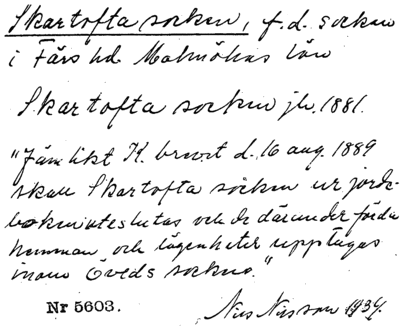 Skartofta socken, f.d. socken
i Färs hd. Malmöhus län
Skartofta socken jb. 1881.
"Jämlikt K. brevet d. 16 aug. 1889
skall Skartofta socken ur jorde-
boken uteslutas och de därunder förda
hemman och lägenheter upptagas
inom Öveds socken."
Nr 5603. Nils Nilsson 1934.